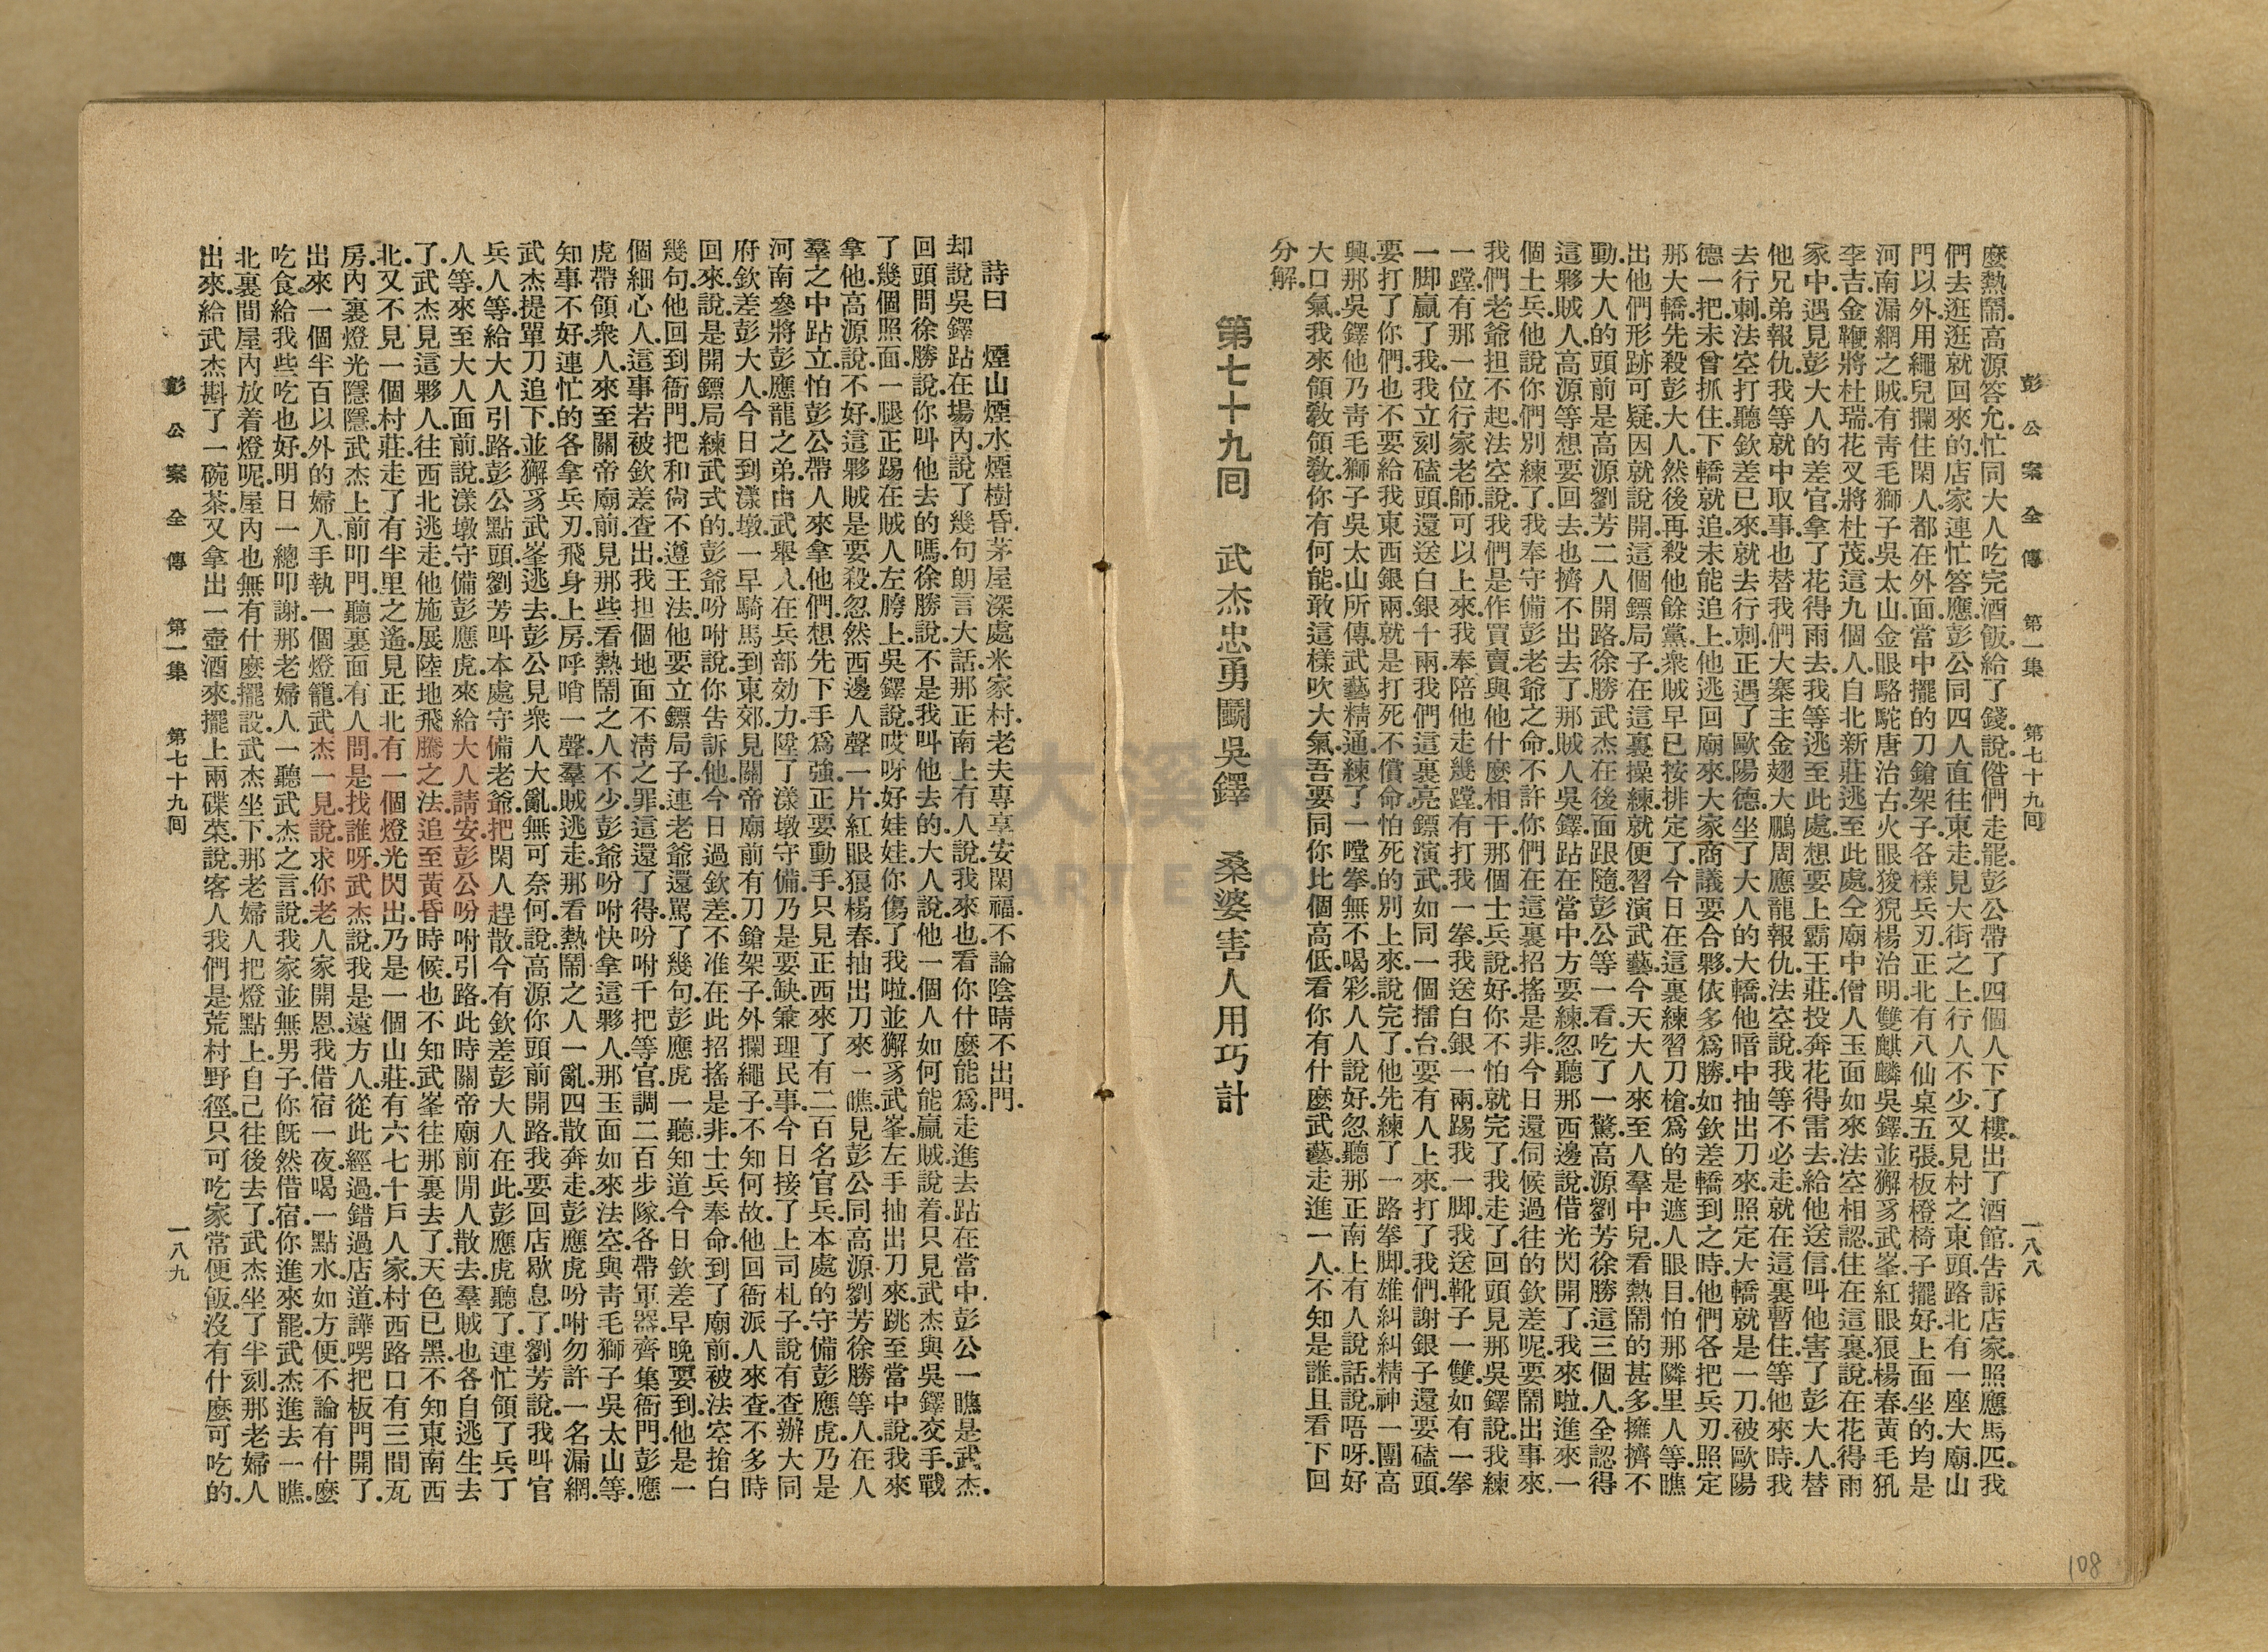 彭公案全傳 第一集 第七十九回 一八八
麼熱鬧.高源答允.忙同大人吃完酒飯.給了錢.說.偺們走罷.彭公帶了四個人下了樓.出了酒館.告訴店家.照應馬匹.我
們去逛逛就回來的.店家連忙答應.彭公同四人直往東走.見大街之上.行人不少.又見村之東頭路北有一座大廟.山
門以外.用繩兒攔住閑人.都在外面.當中擺的刀鎗架子.各樣兵刃.正北有八仙桌五張.板櫈椅子擺好.上面坐的均是
河南漏網之賊.有靑毛獅子吳太山.金眼駱駝唐治古.火眼狻猊楊治明.雙麒麟吳鐸.並獬豸武峯.紅眼狼楊春.黃毛犼
李吉.金鞭將杜瑞.花叉將杜茂.這九個人.自北新莊逃至此處.仝廟中僧人玉面如來法空相認.住在這裏.說在花得雨
家中.遇見彭大人的差官.拿了花得雨去.我等逃至此處.想要上霸王莊投奔花得雷.去給他送信.叫他害了彭大人.替
他兄弟報仇.我等就中取事.也替我們大寨主金翅大鵬周應龍報仇.法空說.我等不必走.就在這裏暫住.等他來時.我
去行刺.法空打聽欽差已來.就去行刺.正遇了歐陽德坐了大人的大轎.他暗中抽出刀來.照定大轎就是一刀.被歐陽
德一把未曾抓住.下轎就追.未能追上.他逃回廟來.大家商議.要合夥依多爲勝.如欽差轎到之時.他們各把兵刃.照定
那大轎.先殺彭大人.然後再殺他餘黨.衆賊早已按排定了.今日在這裏練習刀槍.爲的是遮人眼目.怕那隣里人等瞧
出他們形跡可疑.因就說開這個鏢局子.在這裏操練.就便習演武藝.今天大人來至人羣中兒.看熱鬧的甚多.擁擠不
動.大人的頭前是高源劉芳二人開路.徐勝武杰在後面跟隨.彭公等一看.吃了一驚.高源劉芳徐勝這三個人全認得
這夥賊人.高源等想要回去.也擠不出去了.那賊人吳鐸.跕在當中.方要練.忽聽那西邊說.借光.閃開了.我來啦.進來一
個土兵.他說.你們別練了.我奉守備彭老爺之命.不許你們在這裏招搖是非.今日還伺候過往的欽差呢.要鬧出事來.
我們老爺担不起.法空說.我們是作買賣.與他什麼相干.那個士兵說.好.你不怕就完了.我走了.回頭見.那吳鐸說.我練
一蹚.有那一位行家老師.可以上來.我奉陪他走幾蹚.有打我一拳.我送白銀一兩.踢我一脚.我送靴子一雙.如有一拳
一脚贏了我.我立刻磕頭.還送白銀十兩.我們這裏亮鏢演武.如同一個擂台.要有人上來.打了我們.謝銀子.還要磕頭.
要打了你們.也不要給我東西銀兩.就是打死不償命.怕死的別上來.說完了.他先練了一路拳脚.雄糾糾.精神一團.高
興那吳鐸.他乃靑毛獅子吳太山所傳.武藝精通.練了一蹚拳.無不喝彩.人人說好.忽聽那正南上有人說話.說.唔呀.好
大口氣.我來領敎領敎.你有何能.敢這樣吹大氣.吾要同你比個高低.看你有什麼武藝.走進一人.不知是誰.且看下回
分解.
第七十九回 武杰忠勇鬭吳鐸 桑婆害人用巧計
詩曰 煙山煙水煙樹昏.茅屋深處米家村.老夫專享安閑福.不論陰晴不出門.
却說吳鐸跕在場內.說了幾句朗言大話.那正南上有人說.我來也.看你什麼能爲.走進去.跕在當中.彭公一瞧.是武杰.
回頭問徐勝.說.你叫他去的嗎.徐勝說.不是我叫他去的.大人說.他一個人.如何能贏賊.說着.只見武杰與吳鐸交手.戰
了幾個照面.一腿正踢在賊人左胯上.吳鐸說.哎呀.好娃娃.你傷了我啦.並獬豸武峯.左手抽出刀來.跳至當中.說.我來
拿他.高源說.不好.這夥賊是要殺.忽然西邊人聲一片.紅眼狼楊春.抽出刀來.一瞧見彭公同高源劉芳徐勝等人.在人
羣之中跕立.怕彭公帶人來拿他們.想先下手爲強.正要動手.只見正西來了有二百名官兵.本處的守備彭應虎.乃是
河南參將彭應龍之弟.由武舉人.在兵部効力.陞了漾墩守備.乃是要缺.兼理民事.今日接了上司札子.說有查辦大同
府欽差彭大人.今日到漾墩.一早騎馬到東郊.見關帝廟前有刀鎗架子.外攔繩子.不知何故.他回衙派人來查.不多時
回來.說是開鏢局練武式的.彭爺吩咐說.你告訴他.今日過欽差.不准在此招搖是非.士兵奉命.到了廟前.被法空搶白
幾句.他回到衙門.把和尙不遵王法.他要立鏢局子.連老爺還罵了幾句.彭應虎一聽.知道今日欽差早晚要到.他是一
個細心人.這事若被欽差查出.我担個地面不淸之罪.這還了得.吩咐千把等官.調二百步隊.各帶軍器.齊集衙門.彭應
虎帶領衆人.來至關帝廟前.見那些看熱鬧之人不少.彭爺吩咐.快拿這夥人.那玉面如來法空與靑毛獅子吳太山等.
知事不好.連忙的各拿兵刃.飛身上房.呼哨一聲.羣賊逃走.那看熱鬧之人一亂.四散奔走.彭應虎吩咐.勿許一名漏網.
武杰提單刀追下.並獬豸武峯逃去.彭公見衆人大亂.無可奈何.說高源你頭前開路.我要回店歇息了.劉芳說.我叫官
兵人等.給大人引路.彭公點頭.劉芳叫本處守備老爺.把閑人趕散.今有欽差彭大人在此.彭應虎聽了.連忙領了兵丁
人等.來至大人面前.說漾墩守備彭應虎.來給大人請安.彭公吩咐引路.此時關帝廟前閒人散去.羣賊也各自逃生去
了.武杰見這夥人.往西北逃走.他施展陸地飛騰之法.追至黃昏時候.也不知武峯往那裏去了.天色已黑.不知東南西
北.又不見一個村莊.走了有半里之遙.見正北有一個燈光閃出.乃是一個山莊.有六七十戶人家.村西路口有三間瓦
房.內裏燈光隱隱.武杰上前叩門.聽裏面有人問.是找誰呀.武杰說.我是遠方人.從此經過.錯過店道.譁喇把板門開了.
出來一個半百以外的婦人.手執一個燈籠.武杰一見.說.求你老人家開恩.我借宿一夜.喝一點水.如方便.不論有什麼
吃食.給我些吃也好.明日一總叩謝.那老婦人一聽武杰之言.說.我家並無男子.你旣然借宿.你進來罷.武杰進去一瞧.
北裏間屋內放着燈呢.屋內也無有什麼擺設.武杰坐下.那老婦人把燈點上.自己往後去了.武杰坐了半刻.那老婦人
出來.給武杰斟了一碗茶.又拿出一壺酒來.擺上兩碟菜.說.客人.我們是荒村野徑.只可吃家常便飯.沒有什麼可吃的.
彭公案全傳 第一集 第七十九回 一八九
108